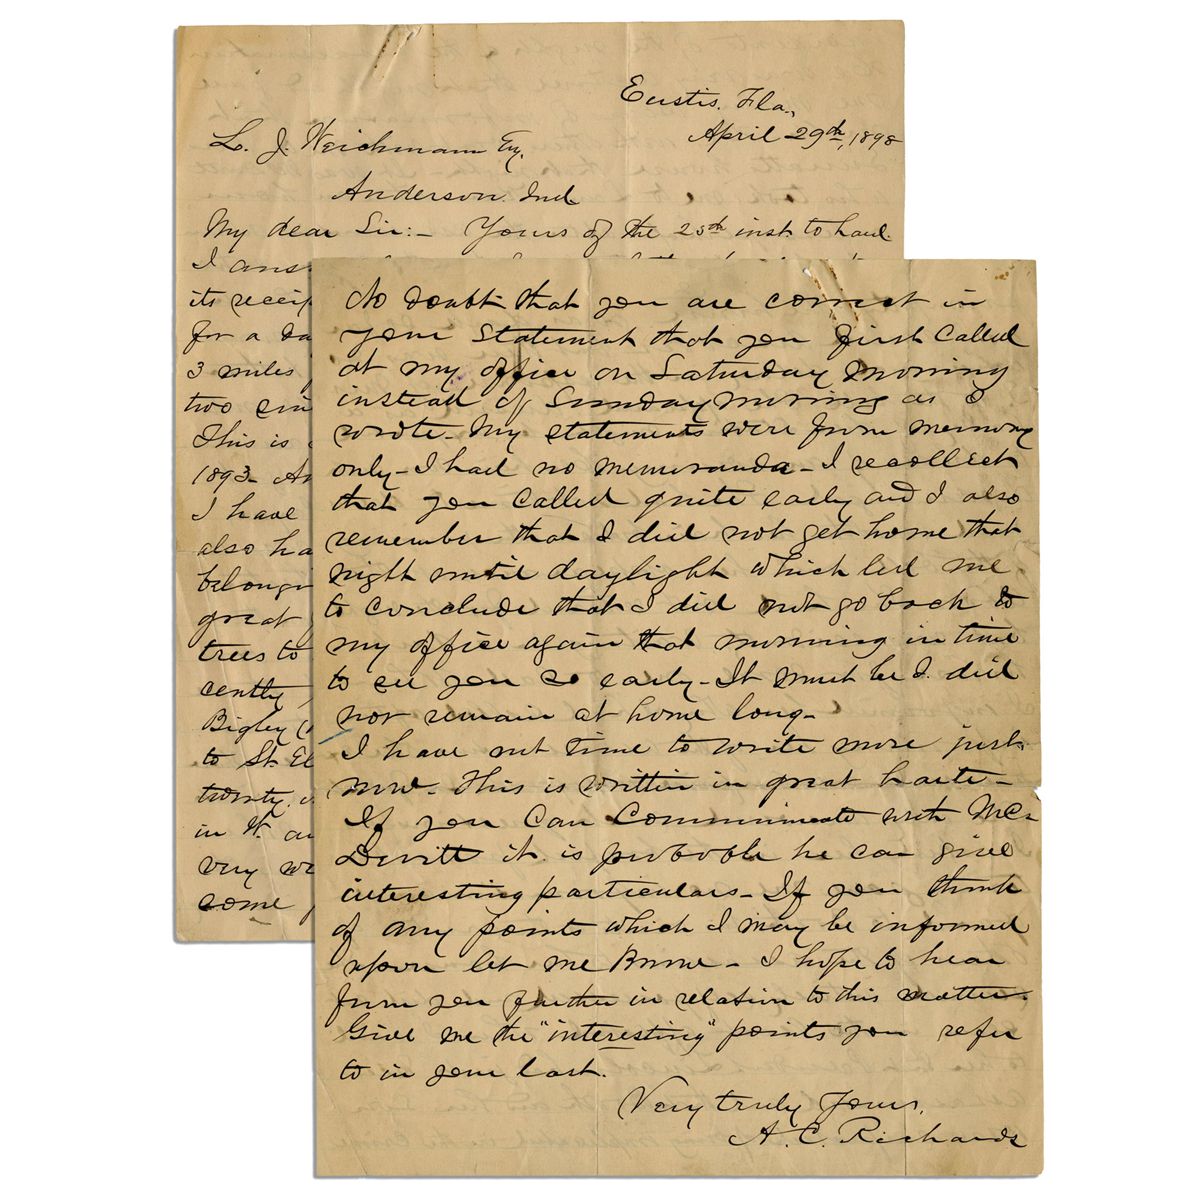 Eustis. Fla.,
April 29th, 1898
L. J. Weichmann Esq.
Anderson. Ind.
My dear Sir:- Yours of the 25th inst. to hand.
I ans
its receip
for a da
3 miles
two sin
This is
1893- An
I have
also ha
belongi
great
trees to
cently
Bigley
to St. El
twenty.
in it. an
very w
some
No doubt that you are correct in
your statement that you first called
at my office on Saturday morning
instead of Sunday morning as I
wrote- My statements were from memory
only- I had no memoranda- I recollect
that you called quite early and I also
remember that I did not get home that
night until daylight which led me
to conclude that I did not go back to
my office again that morning in time
to see you so early- It must be I did
not remain at home long-
I have not time to write more just
now- This is written in great haste-
If you can communicate with Mc
Devitt it is probable he can give
interesting particulars- If you think
of any points which I may be informed
upon let me know- I hope to hear
from you further in relation to this matter-
Give me the "interesting" points you refer
to in your last.
Very truly Yours,
A. C. Richards